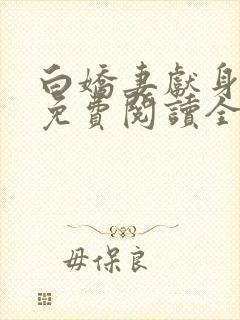 白嬌妻獻身
免費閱讀全
毋保良